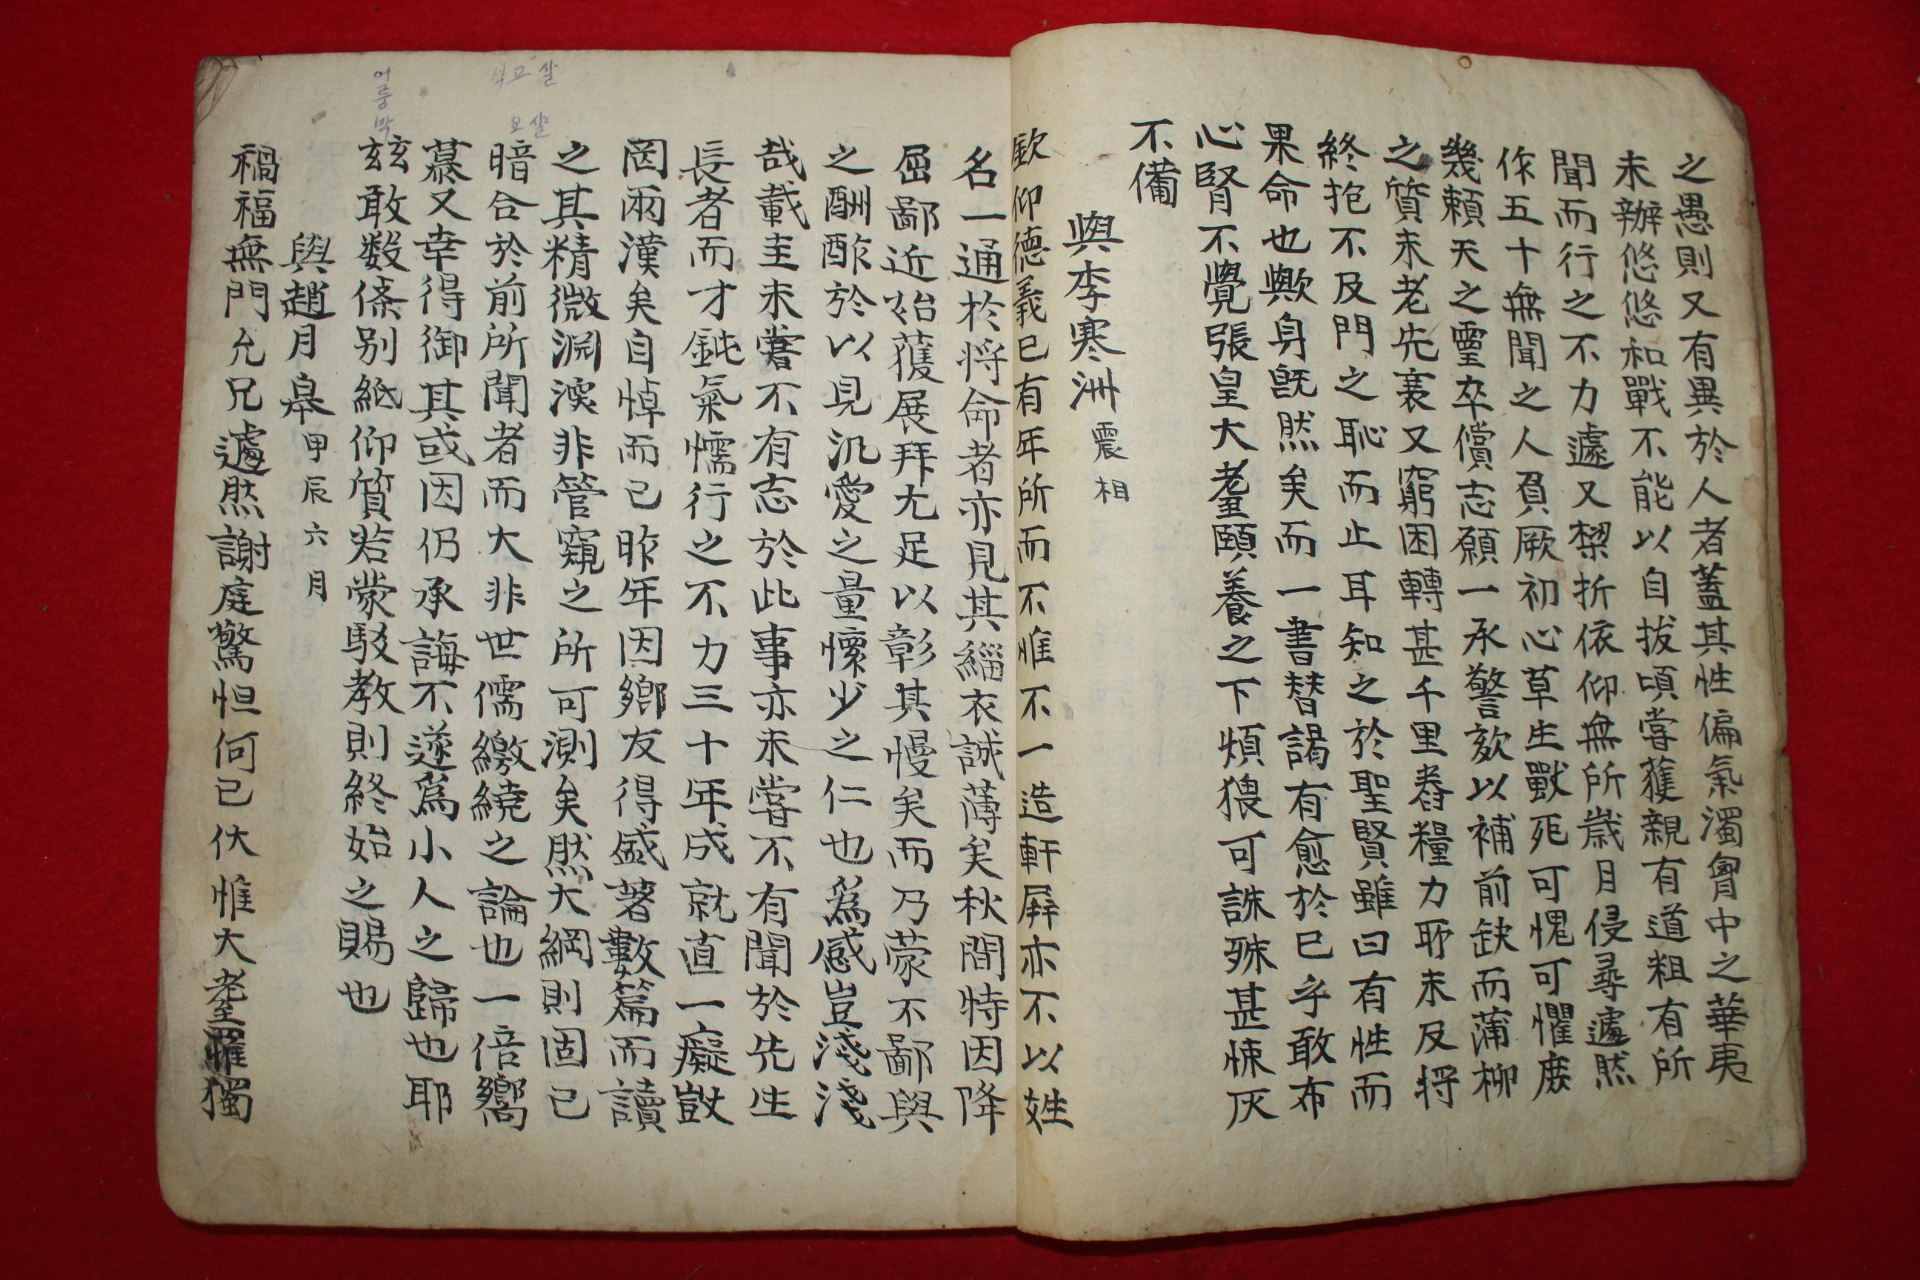 之愚則又有異於人者蓋其性偏氣濁胷中之華夷
未辦悠悠和戰不能以自拔頃嘗獲親有道粗有所
聞而行之不力遽又樑折依仰無所歲月侵尋遽然
作五十無聞之人負厥初心草生獸死可愧可懼庻
幾賴天之靈卒償志願一承警欬以補前缺而蒲柳
之質未老先衰又窮困轉甚千里舂糧力耶未及將
終抱不及門之恥而止耳知之於聖賢雖曰有性而
果命也歟身旣然矣而一書替謁有愈於已乎敢布
心腎不覺張皇大耋頤養之下煩猥可誅殊甚悚仄
不備
與李寒洲震相
欽仰德義已有年所而不惟不一造軒屛亦不以姓
名一通於將命者亦見其緇衣誠薄矣秋間特因降
屈鄙近始獲展拜尤足以彰其慢矣而乃蒙不鄙與
之酬酢於以見汎愛之量懷少之仁也爲感豈淺淺
哉載圭未嘗不有志於此事亦未嘗不有聞於先生
長者而才鈍氣懦行之不力三十年成就直一癡獃
罔兩漢矣自悼而已昨年因鄕友得盛著數篇而讀
之其精微淵湥非管窺之所可測矣然大綱則固已
暗合於前所聞者而大非世儒繳繞之論也一倍嚮
慕又幸得御其或因仍承誨不遂爲小人之歸也耶
玆敢数条别紙仰質若蒙駁教則終始之賜也
與趙月皋甲辰六月
禍福無門允兄遽然謝庭驚怛何已伏惟大耋罹獨
어릉막
석교살
요샬